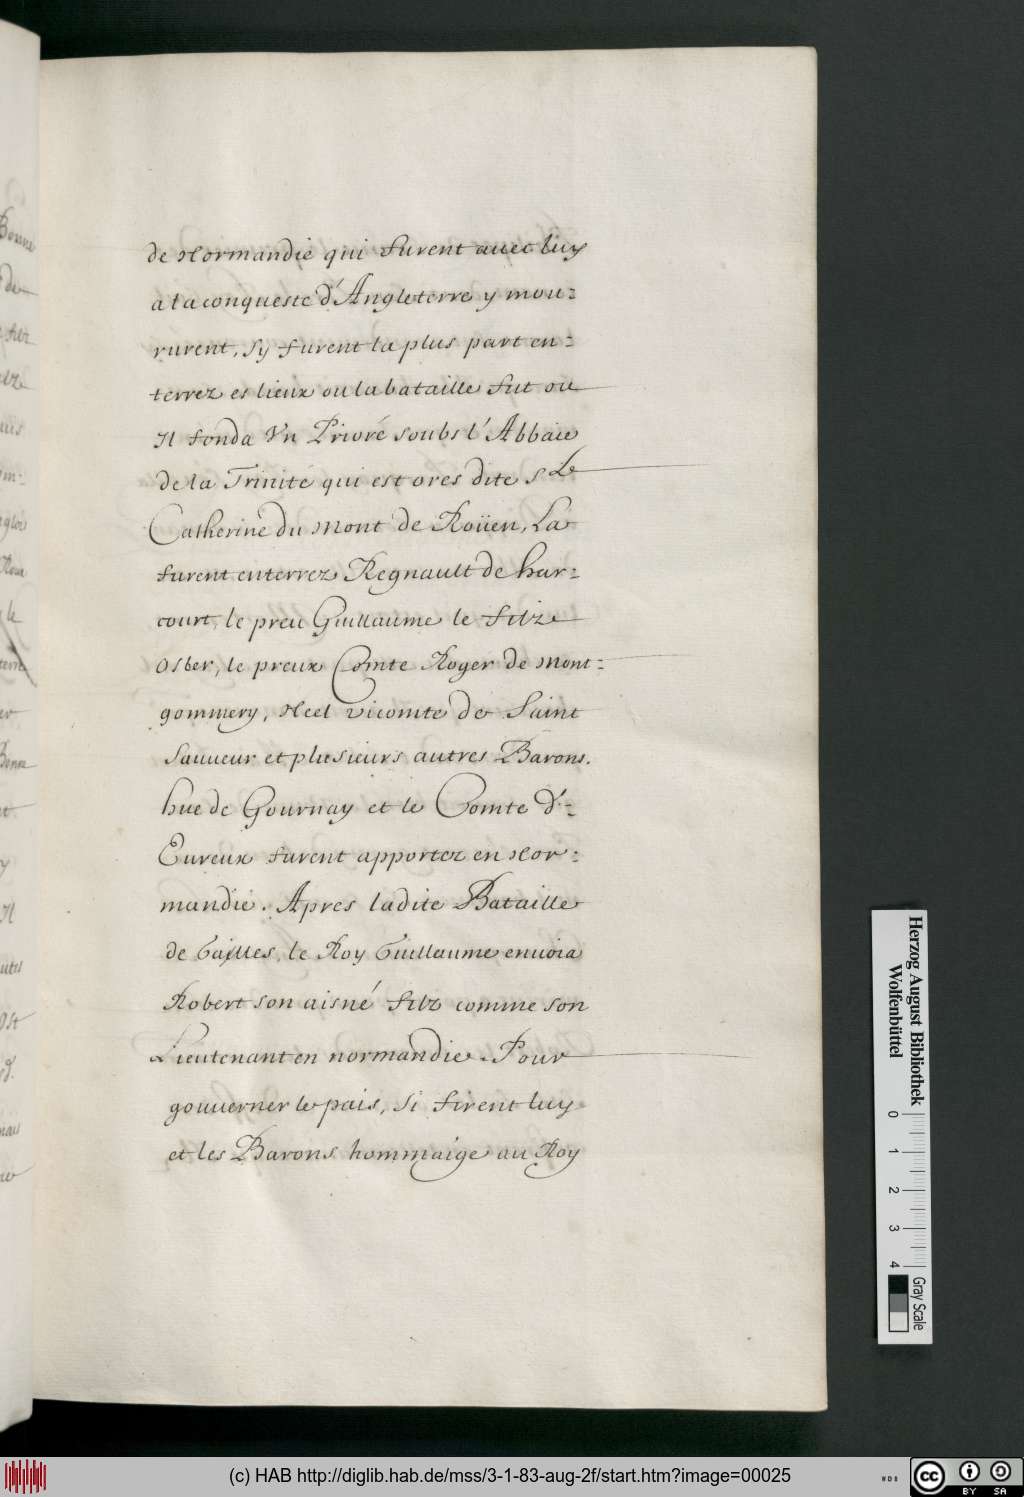 de Normandie qui furent avec luy
a la conqueste d'Angleterre y mou-
rurent, sy furent la plus part en-
terrez es lieux ou la bataille fut ou
Il fonda Vn Prioré soubs l'Abbaie
de la Trinité qui est ores dite Ste
Catherine du Mont de Roüen, La
furent enterrez Regnault de har-
court, le preu Guillaume le filz
Osber, le preux Comte Roger de Mont-
gommery, Neel vicomte de Saint
Sauueur et plusieurs autres Barons.
hue de Gournay et le Comte d'-
Eureux furent apportez en Nor-
mandie. Apres ladite Bataille
de Gailles, le Roy Guillaume enuoia
Robert son aisné filz comme son
Lieutenant en normandie. Pour
gouuerner le pais, Si firent luy
et les Barons hommaige au Roy
Herzog August Bibliothek
Wolfenbüttel
0 1 2 3 4
Gray Scale
(c) HAB http://diglib.hab.de/mss/3-1-83-aug-2f/start.htm?image=00025
WDB
cc BY SA